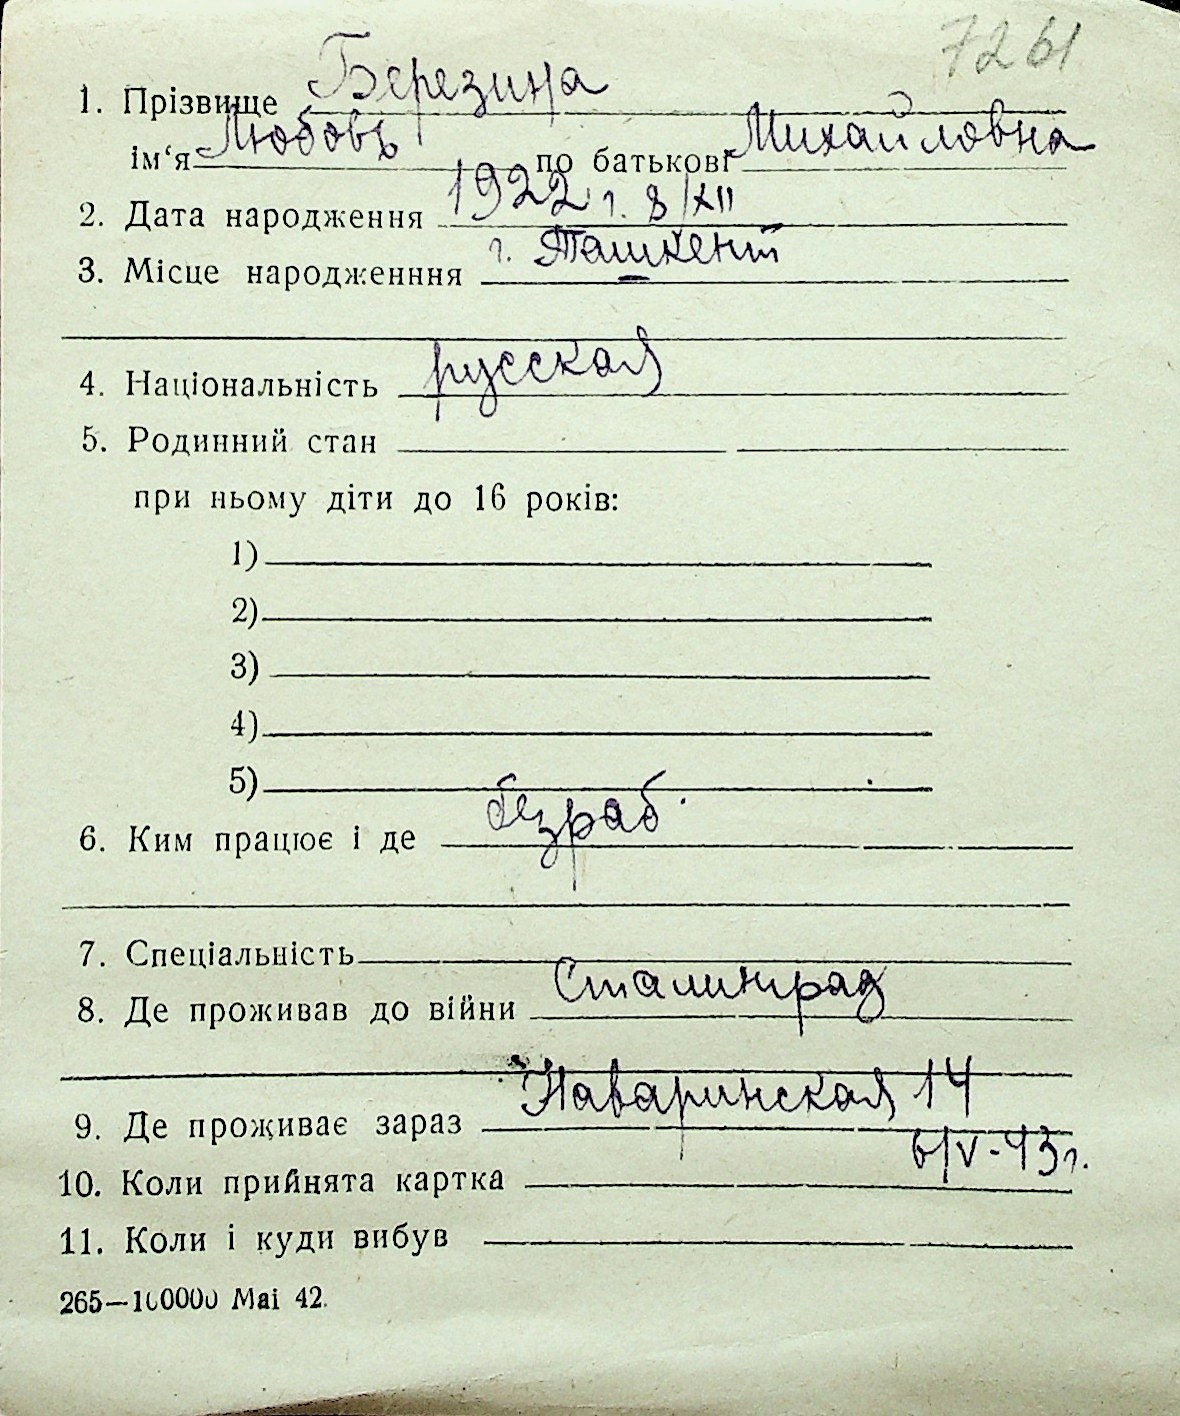 7261
1. Прізвище Березина
ім‘я Любовь по батькові Михайловна
2. Дата народження 1922 г. 8/XII
3. Місце народженння г. Ташкент
4. Національність русская
5. Родинний стан
при ньому діти до 16 років:
1)
2)
3)
4)
5)
6. Ким працює і де безраб.
7. Спеціальність
8. Де проживав до війни Сталинград
9. Де проживає зараз Наваринская 14
10. Коли прийнята картка 6/V-43 г.
11. Коли і куди вибув
265—100000 Mai 42.